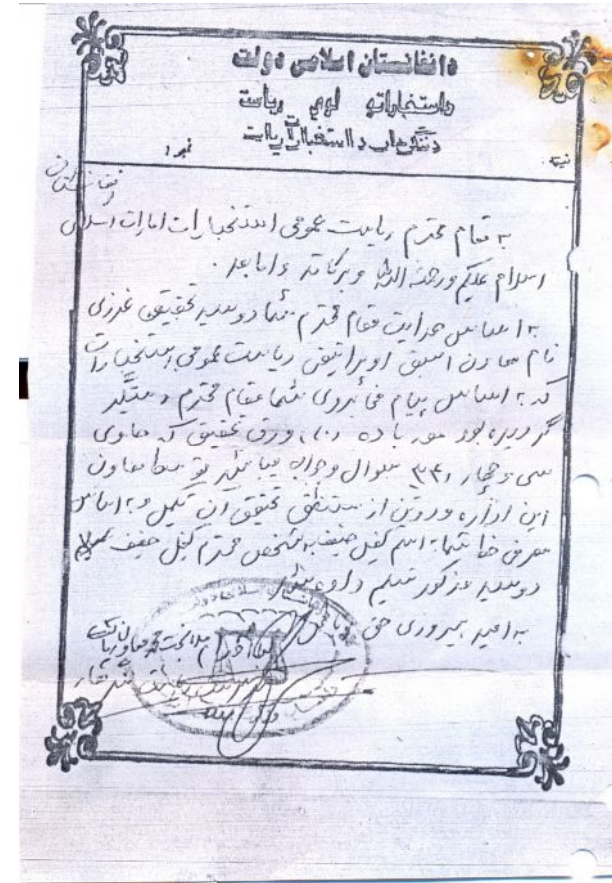 دافغانستان اسلامی دولت
داستخباراتو لوی ریاست
د ننگرهار د استخباراتو ریاست
نمبر
نیټه
افغانستان
به مقام محترم ریاست عمومی استخبارات امارات اسلامی
اسلام علیکم ورحمت الله وبرکاته واما بعد.
به اساس هدایت مقام محترم شما دوسیه تحقیقی غرزی
نام معاون اسبق اوپراتیفی ریاست عمومی استخبارات
که به اساس پیام مخابروی شما مقام محترم دستگیر
گردیده بود مورد باده (۱۰) ورق تحقیق که حاوی
سی وچهار (۳۴) سوال وجواب میباشد توسط معاون
این اداره و از تحقیق آن تکمیل و به اساس
معرفی خط شما به اسم کفیل حنیف به شخص محترم کفیل حنیف
دوسیه مذکور تسلیم داده شد
به امید پیروزی حق